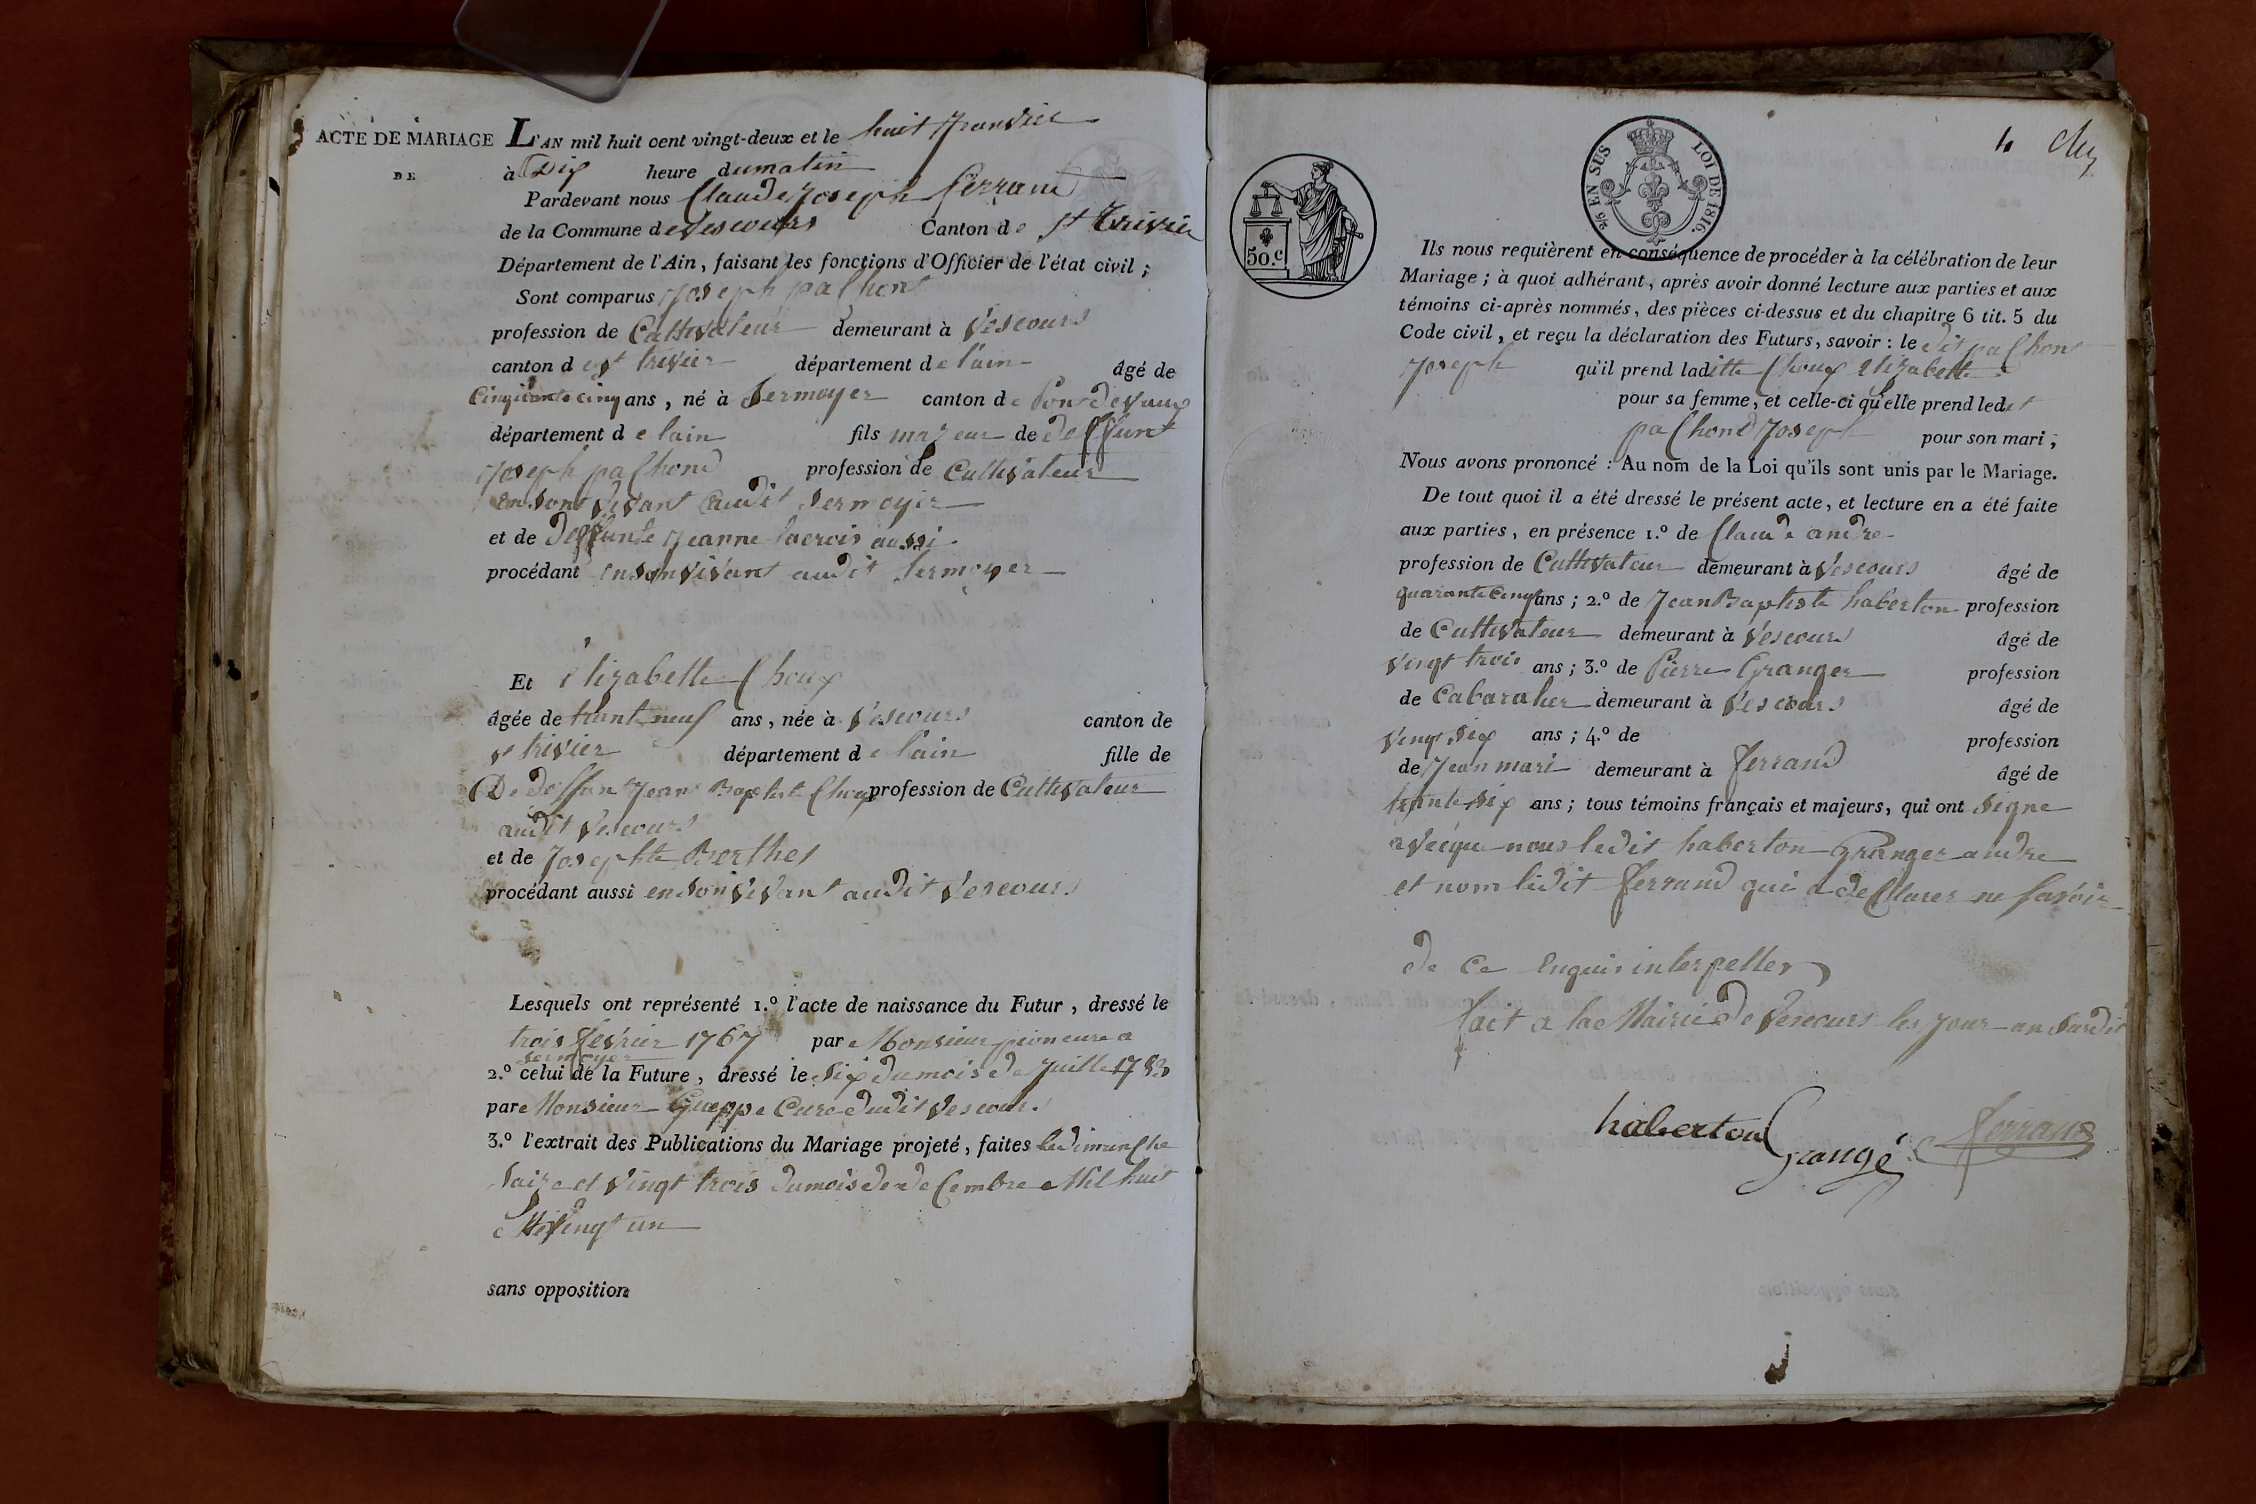 ACTE DE MARIAGE
DE
L'AN mil huit cent vingt-deux et le huit Janvier
à Dix heure dumatin
Pardevant nous Claude Joseph ferrand
de la Commune de Vescours Canton de St Trivier
Département de l'Ain, faisant les fonctions d'Officier de l'état civil ;
Sont comparus Joseph pachond
profession de Cultivateur demeurant à Vescours
canton de st trivier département de lain âgé de
Cinquante cinq ans, né à Sermoyer canton de Pont de vaux
département de lain fils majeur de deffunt
Joseph pachond profession de Cultivateur
en son vivant audit Sermoyer
et de deffunte Jeanne lacroix aussi
procédant en son vivant audit Sermoyer
Et Elizabette Choux
âgée de trent neuf ans, née à Vescours canton de
st trivier département de lain fille de
De deffun Jean Baptiste Choux profession de Cultivateur
audit Vescours
et de Josephte Berthet
procédant aussi en son vivant audit Vescours
Lesquels ont représenté 1.° l'acte de naissance du Futur, dressé le
trois février 1767 par Monsieur
sermoyer
2.° celui de la Future, dressé le six dumois de Juillet
par Monsieur Gueppe Cure dudit Vescours
3.° l'extrait des Publications du Mariage projeté, faites le dimanche
saize et vingt trois dumois de decembre Mil huit
vingt un
sans opposition
50.c
%10 EN SUS LOI DE 1816.
4
Ils nous requièrent en conséquence de procéder à la célébration de leur
Mariage ; à quoi adhérant, après avoir donné lecture aux parties et aux
témoins ci-après nommés, des pièces ci-dessus et du chapitre 6 tit. 5 du
Code civil, et reçu la déclaration des Futurs, savoir : le dit pachond
Joseph qu'il prend laditte Choux Elizabette
pour sa femme, et celle-ci qu'elle prend ledit
pachond Joseph pour son mari ;
Nous avons prononcé : Au nom de la Loi qu'ils sont unis par le Mariage.
De tout quoi il a été dressé le présent acte, et lecture en a été faite
aux parties, en présence 1.° de Claude andre
profession de Cultivateur demeurant à Vescours âgé de
quarante Cinq ans ; 2.° de Jean Baptiste haberton profession
de Cultivateur demeurant à Vescours âgé de
vingt trois ans ; 3.° de Pierre Granger profession
de Cabaratier demeurant à Vescours âgé de
vingt six ans ; 4.° de profession
de Jean mari demeurant à ferrand âgé de
trente six ans ; tous témoins français et majeurs, qui ont signe
avecque nous ledit haberton Granger andre
et nom ledit ferrand qui a declarer ne savoir
de ce enquis interpeller
fait a la Mairie de Vescours les jour an surdit
haberton Grangé ferrand